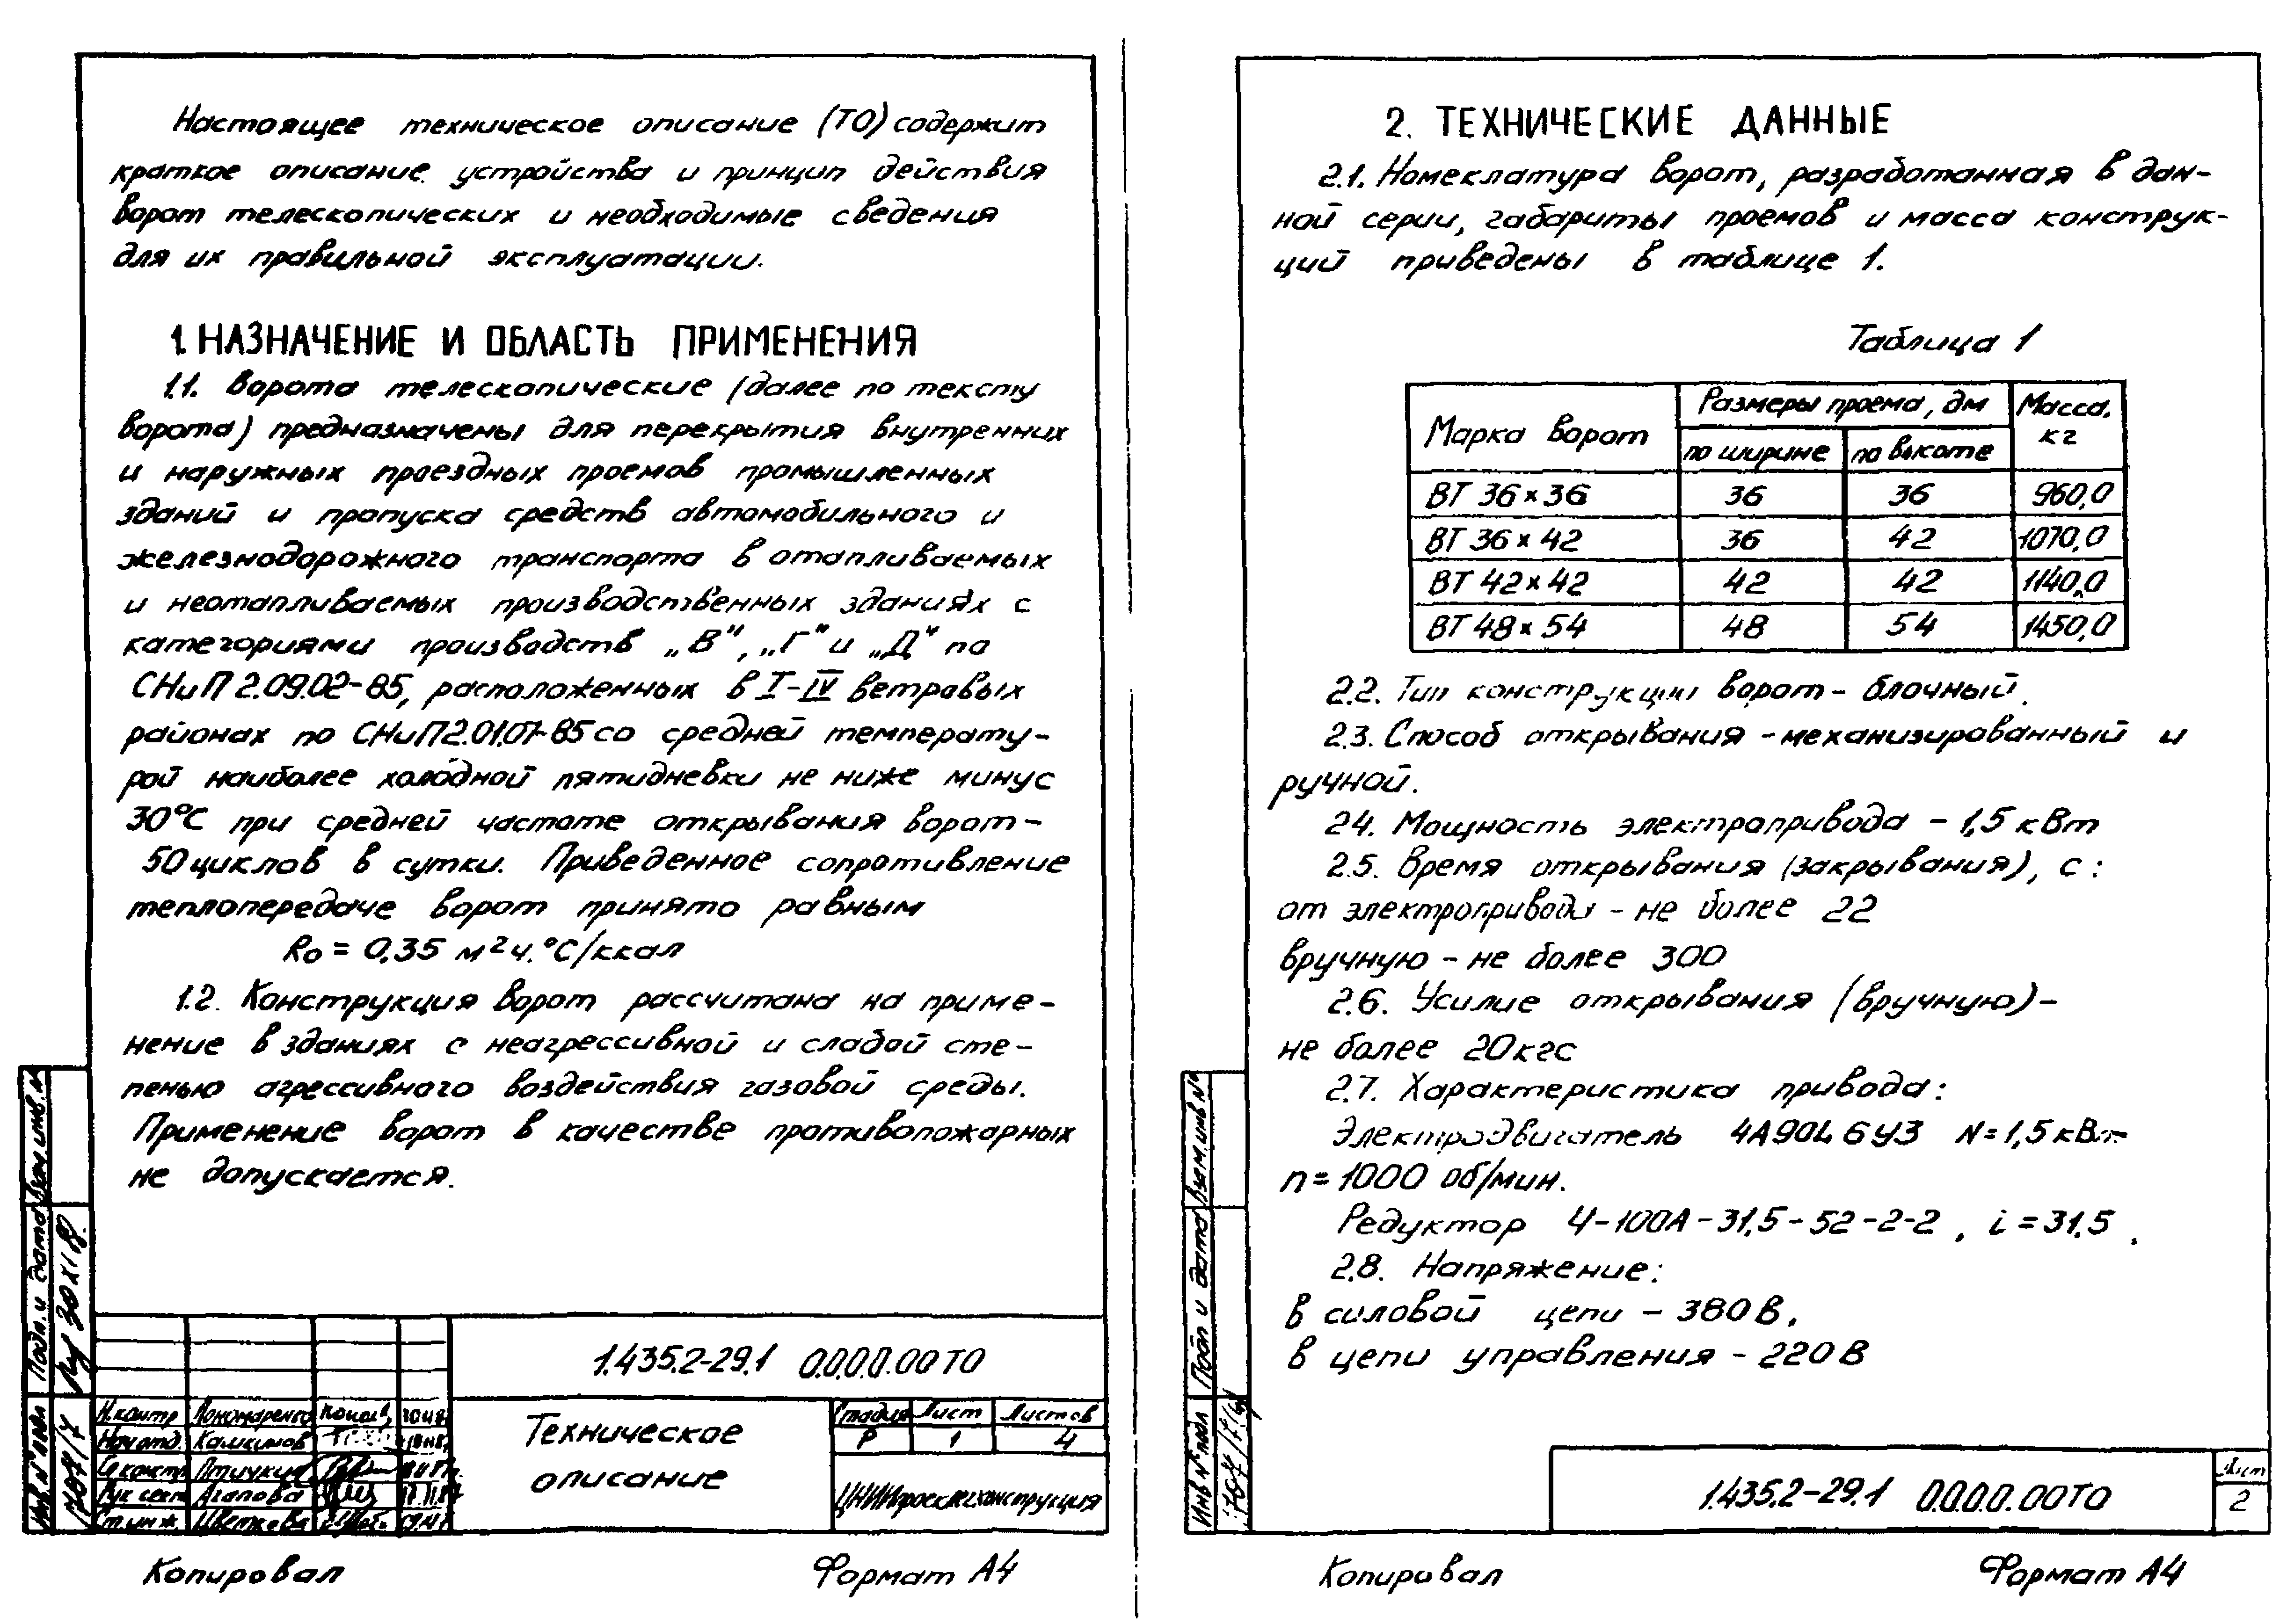 Настоящее техническое описание (ТО) содержит
краткое описание устройства и принцип действия
ворот телескопических и необходимые сведения
для их правильной эксплуатации.
1. НАЗНАЧЕНИЕ И ОБЛАСТЬ ПРИМЕНЕНИЯ
1.1. Ворота телескопические (далее по тексту
ворота) предназначены для перекрытия внутренних
и наружных проездных проемов промышленных
зданий и пропуска средств автомобильного и
железнодорожного транспорта в отапливаемых
и неотапливаемых производственных зданиях с
категориями производств „В", „Г" и „Д" по
СНиП 2.09.02-85, расположенных в I-IV ветровых
районах по СНиП 2.01.07-85 со средней температу-
рой наиболее холодной пятидневки не ниже минус
30°С при средней частоте открывания ворот-
50 циклов в сутки. Приведенное сопротивление
теплопередаче ворот принято равным
Ro = 0,35 м²ч.°С/ккал
1.2. Конструкция ворот рассчитана на приме-
нение в зданиях с неагрессивной и слабой сте-
пенью агрессивного воздействия газовой среды.
Применение ворот в качестве противопожарных
не допускается.
Взам. инв. №
Подп. и дата
Инв № подл
1.435.2-29.1 0.0.0.0.00ТО
Н.контр Пономаренко
Нач отд.
Гл констр Птичкин
Рук сект Агапова
Ст инж. Цветкова
Техническое
описание
Стадия Лист Листов
Р 1 4
ЦНИИпроектлегконструкция
Копировал Формат А4
2. ТЕХНИЧЕСКИЕ ДАННЫЕ
2.1. Номеклатура ворот, разработанная в дан-
ной серии, габариты проемов и масса конструк-
ций приведены в таблице 1.
Таблица 1
Марка ворот Размеры проема, дм Масса,
кг
по ширине по высоте
ВТ 36×36 36 36 960,0
ВТ 36×42 36 42 1070,0
ВТ 42×42 42 42 1140,0
ВТ 48×54 48 54 1450,0
2.2. Тип конструкции ворот - блочный.
2.3. Способ открывания - механизированный и
ручной.
2.4. Мощность электропривода - 1,5 кВт
2.5. Время открывания (закрывания), с:
от электропривода - не более 22
вручную - не более 300
2.6. Усилие открывания (вручную)-
не более 20кгс
2.7. Характеристика привода:
Электродвигатель 4А90L6У3 N=1,5кВт
n=1000 об/мин.
Редуктор Ч-100А-31,5-52-2-2, i=31,5.
2.8. Напряжение:
в силовой цепи - 380 В,
в цепи управления - 220 В
Взам. инв №
Подп и дата
Инв № подл
1.435.2-29.1 0.0.0.0.00ТО
Лист
2
Копировал Формат А4